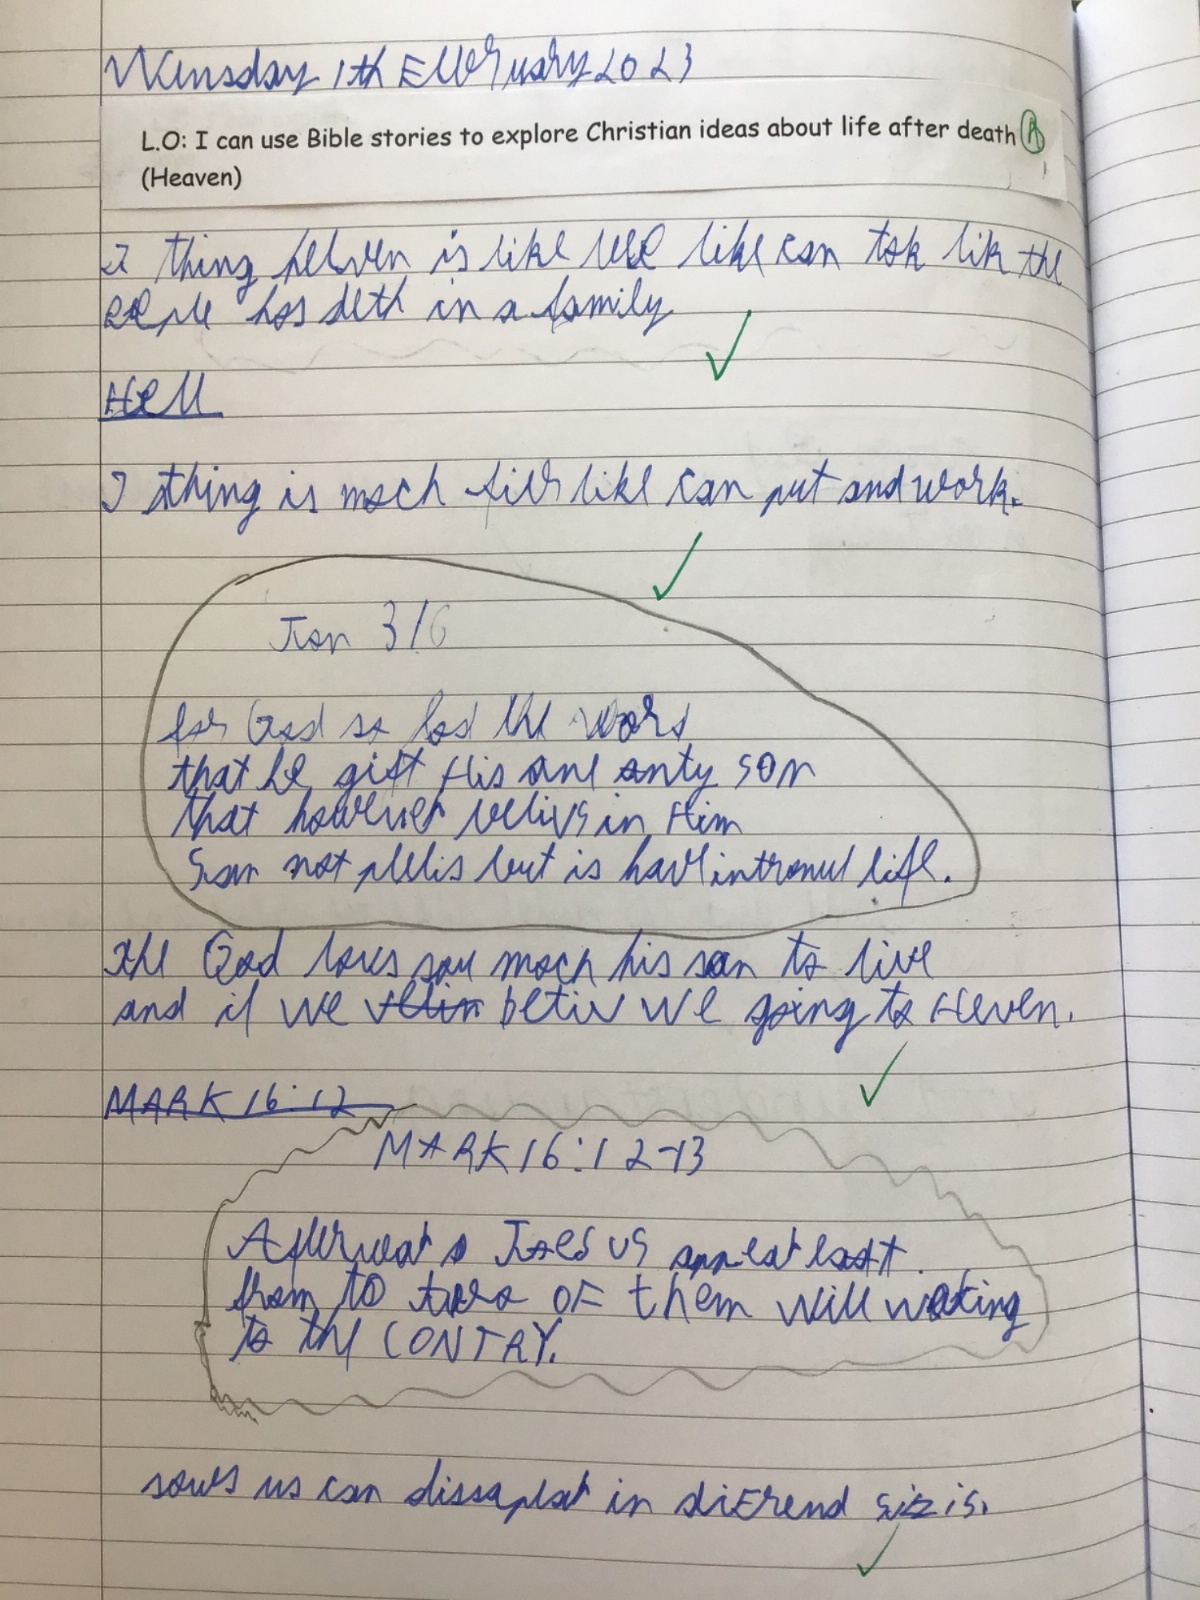 Wensday 1th Ebruary 2023
L.O: I can use Bible stories to explore Christian ideas about life after death
(Heaven)
I thing heven is like like can tok lik the
has deth in a family
Hell
I thing is moch fier like can put and work.
Jon 316
for God so lod the word
that he gift His one only son
that however belivs in Him
not but is have intronul life.
the God loves sou moch his son to live
and if we beliv we going to Heven.
MARK 16:12
MARK 16:12-13
Afterwat s Jises us appeat last
from to two OF them will woking
to the CONTRY.
sows us can dissapeat in diErend sizis.